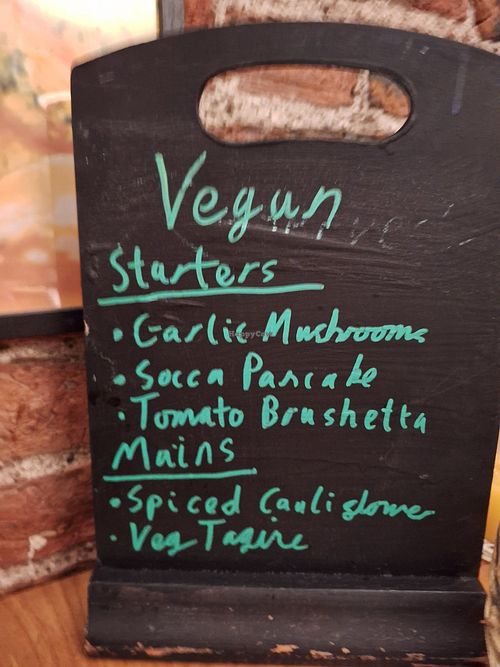 Vegan
Starters
• Garlic Mushrooms
• Socca Pancake
• Tomato Brushetta
Mains
• Spiced Cauliflower
• Veg Tagine